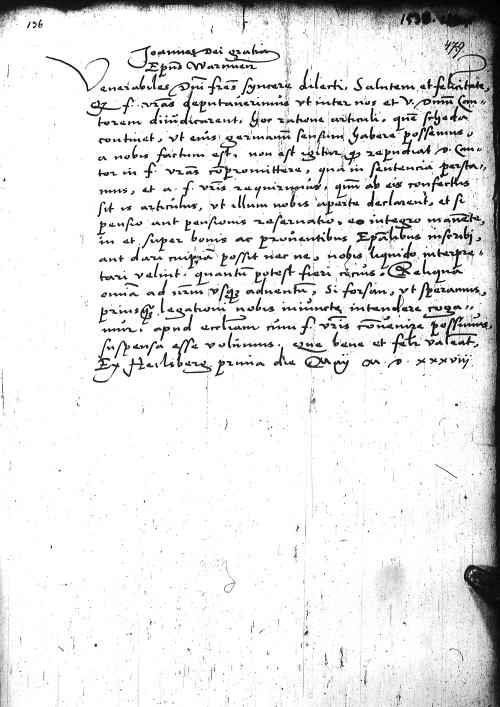 136
1538
479
Joannes Dei gratia
Epus Warmien
Venerabiles Dni fres syncere dilecti, Salutem et felicitate,
f. vras deputaverimus ut inter nos et V. Dnum Can-
torem diiudicarent, hoc ratione articuli, que scheda
continet, ut eius germanum sensum habere possemus,
a nobis factum est, non est igitur q repudiat D. Can-
tor in f. vras copromittere, qua in sentencia persta-
mus, et a f. vris requirimus, quum ab eis confectus
sit is articulus, ut illum nobis aperte declarent, et si
pensio aut pensionis reservatio, eo integro manete,
in et super bonis ac proventibus Epalibus inscribi,
aut dari cuipia possit nec ne, nobis liquido interpre-
tari velint, quantu potest fieri cicius. Reliqua
omia ad nrm usq adventu, Si forsan, ut speramus,
priusq legationi nobis iniuncte intendere coga-
mur, apud eccliam cum f. vris covenire possimus,
suspensa esse volumus. Que bene et felr valeat,
Ex Heilsberg prima die Maij M D xxxviij